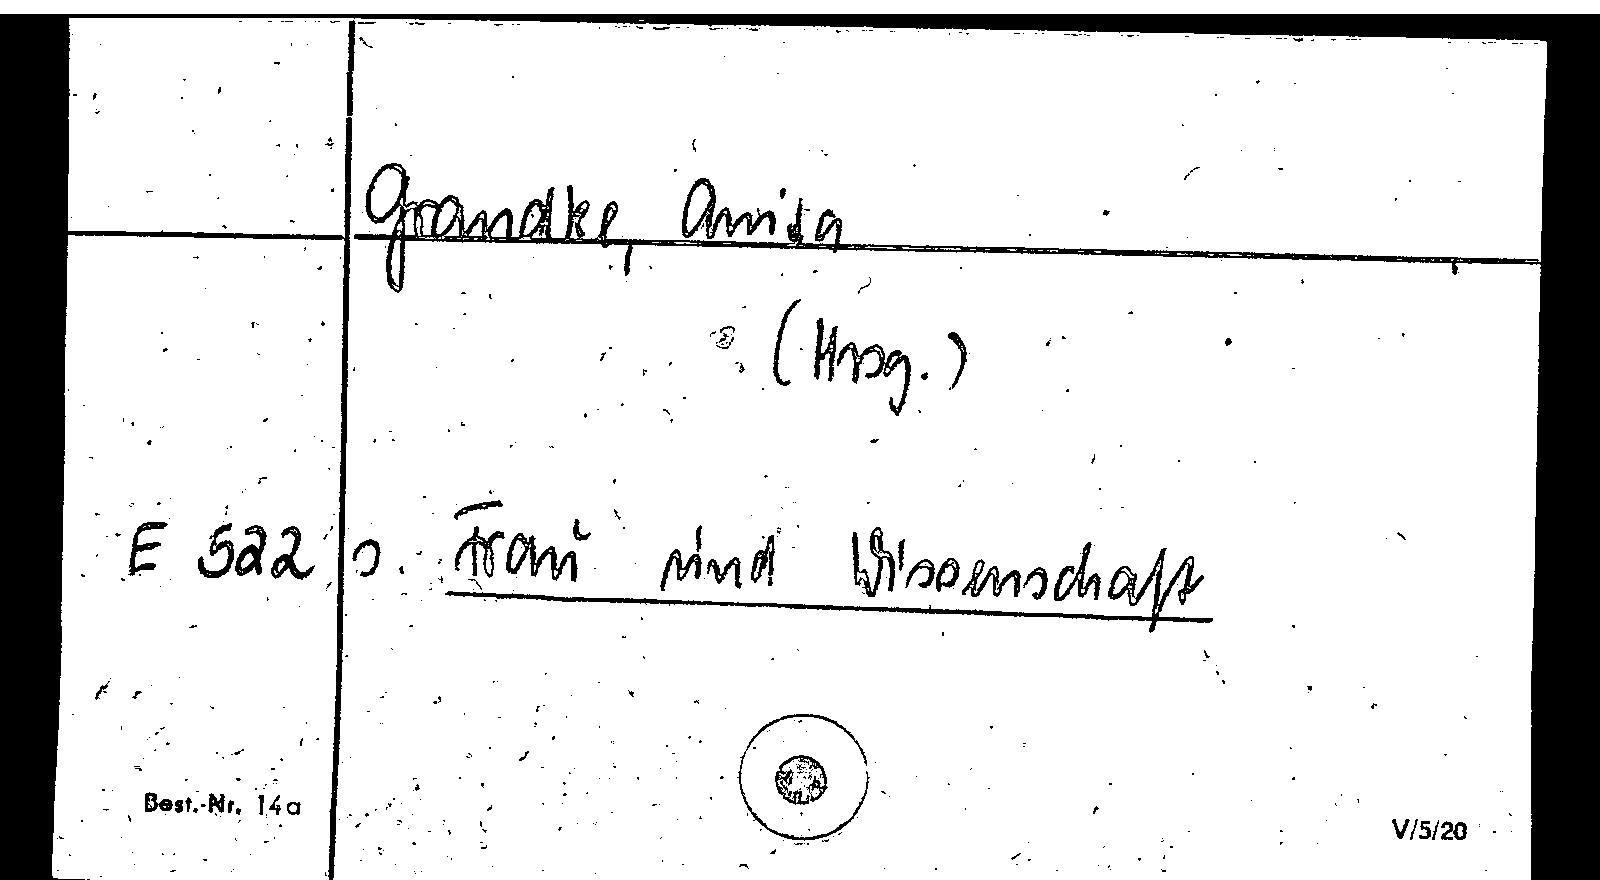 Grandke, Anita
(Hrsg.)
E 522 s. Frau und Wissenschaft
Best.-Nr. 14a
V/5/20